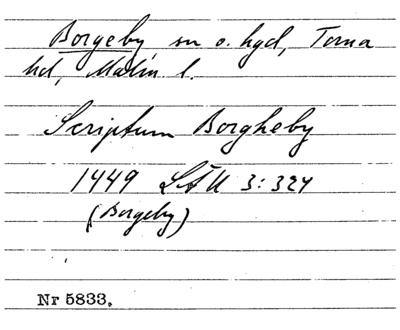 Borgeby, sn o. hgd, Torna
hd, Malm l.
Scriptum Borgheby
1449 LÄU 3:324
(Borgeby)
Nr 5833.